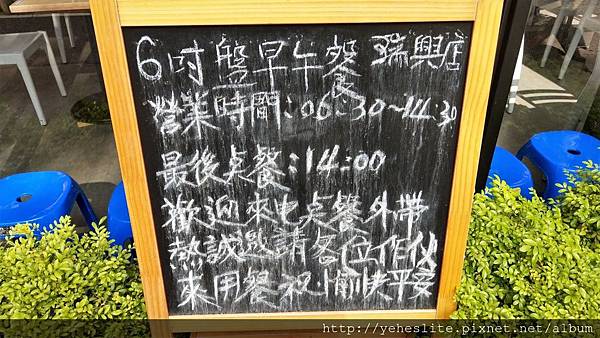 6吋盤早午餐 瑞興店
營業時間：06:30~14:30
最後点餐：14:00
歡迎來电点餐外帶
熱誠邀請各位作伙
來用餐祝愉快平安
http://yeheslite.pixnet.net/album